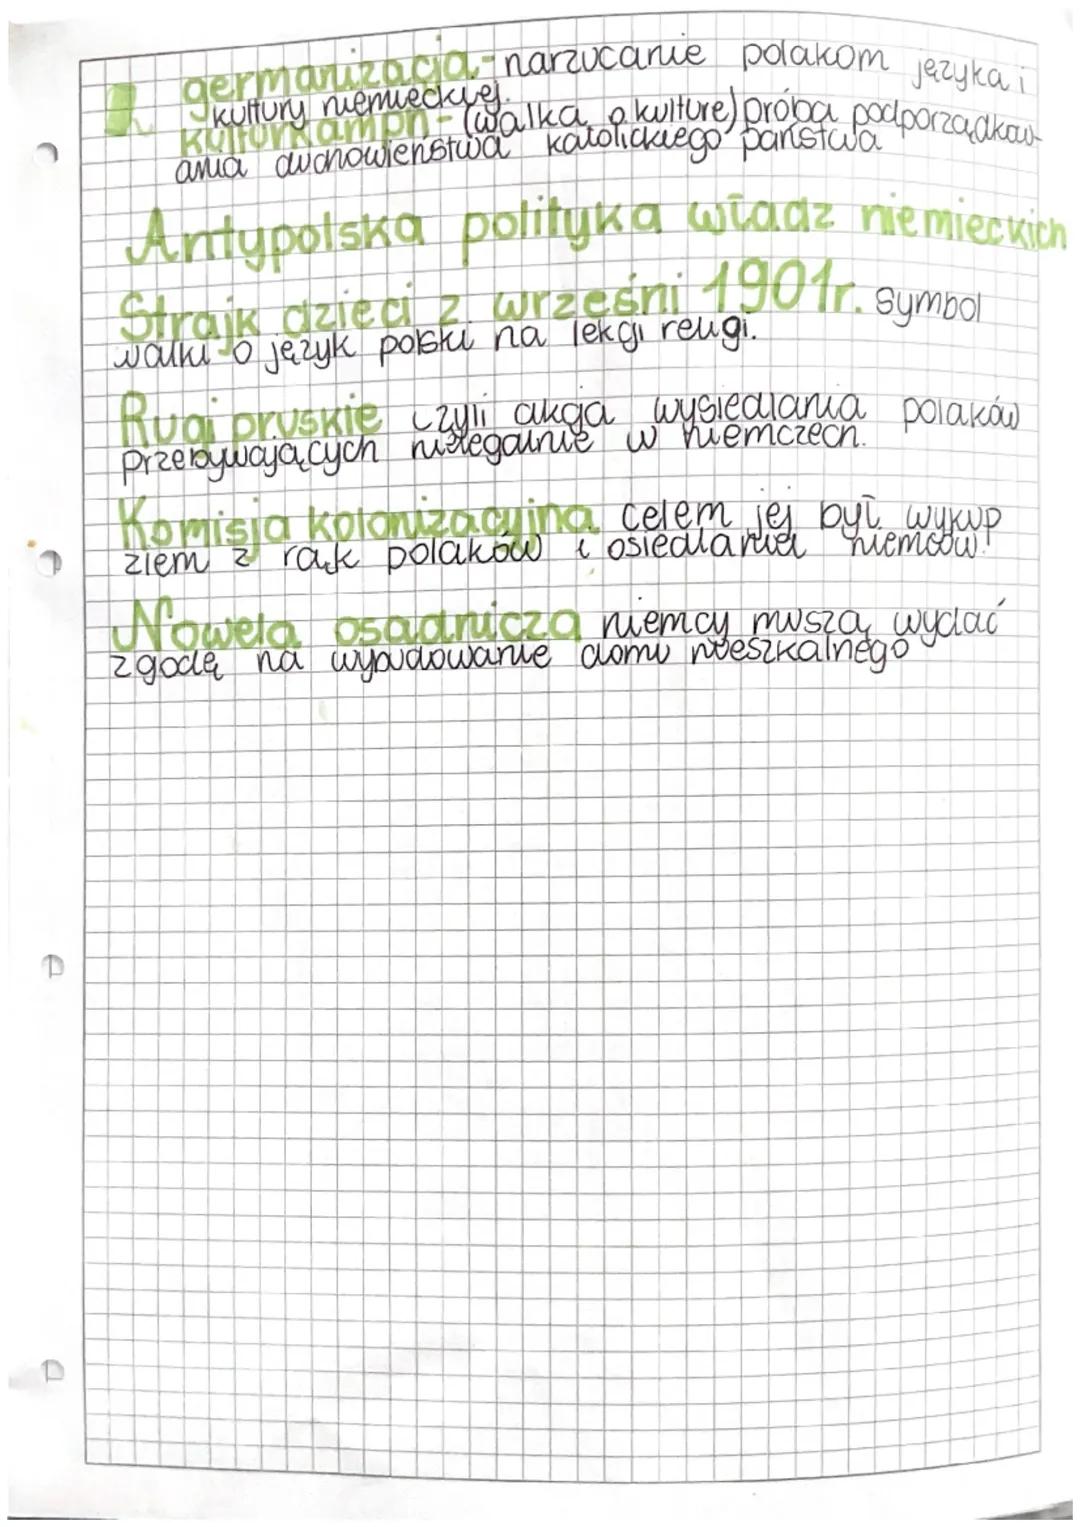 germanizacja - narzucanie polakom języka i
kultury niemieckiej.
kulturkamph - (walka o kulture) próba podporządkow-
ania duchowieństwa katolickiego państwa
Antypolska polityka władz niemieckich
Strajk dzieci z wrześni 1901r. symbol
walki o język polski na lekcji religi.
Rugi pruskie czyli akcja wysiedlania polaków
przebywających nielegalnie w niemczech.
Komisja kolonizacyjna celem jej był wykup
ziem z rąk polaków i osiedlania niemców.
Nowela osadnicza niemcy muszą wydać
zgodę na wybudowanie domu mieszkalnego